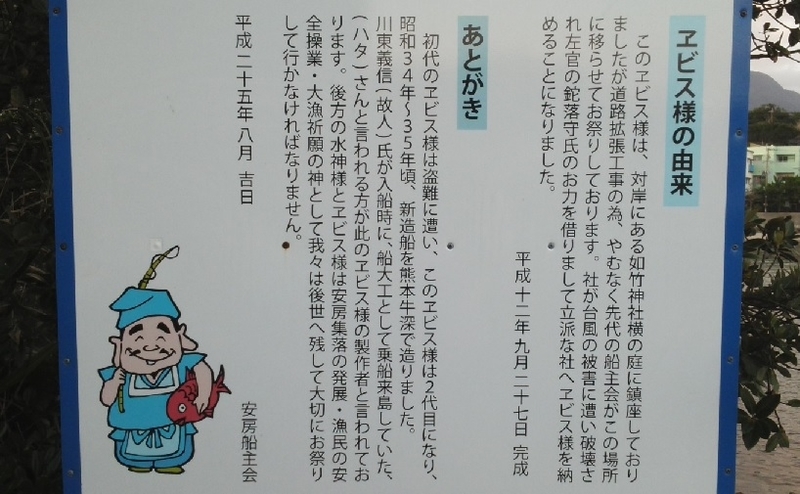 ヱビス様の由来
このヱビス様は、対岸にある如竹神社横の庭に鎮座しており
ましたが道路拡張工事の為、やむなく先代の船主会がこの場所
に移らせてお祭りしております。社が台風の被害に遭い破壊さ
れ左官の鉈落守氏のお力を借りまして立派な社へヱビス様を納
めることになりました。
平成十二年九月二十七日 完成
あとがき
初代のヱビス様は盗難に遭い、このヱビス様は2代目になり、
昭和34年〜35年頃、新造船を熊本牛深で造りました。
川東義信(故人)氏が入船時に、船大工として乗船来島していた、
(ハタ)さんと言われる方が此のヱビス様の製作者と言われてお
ります。後方の水神様とヱビス様は安房集落の発展・漁民の安
全操業・大漁祈願の神として我々は後世へ残して大切にお祭り
して行かなければなりません。
平成二十五年八月 吉日
安房船主会